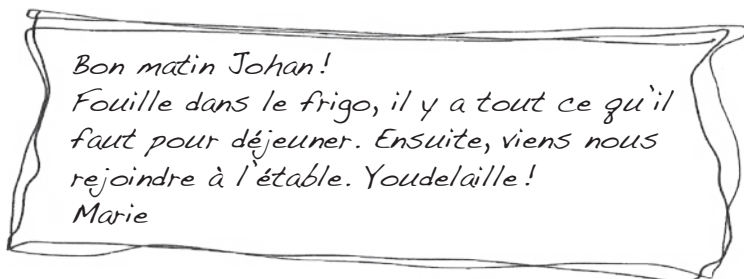 Bon matin Johan!
Fouille dans le frigo, il y a tout ce qu'il
faut pour déjeuner. Ensuite, viens nous
rejoindre à l'étable. Youdelaille!
Marie